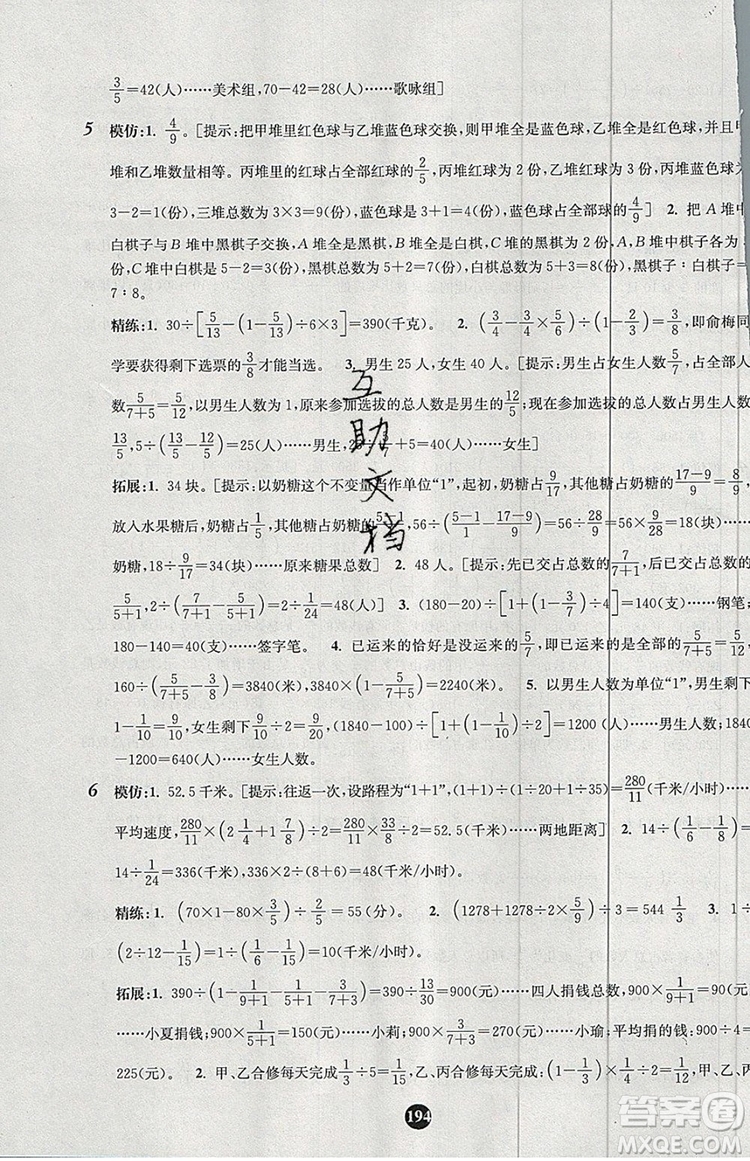 3/5=42(人)……美术组,70-42=28(人)……歌咏组]
5 模仿:1. 4/9。[提示:把甲堆里红色球与乙堆蓝色球交换,则甲堆全是蓝色球,乙堆全是红色球,并且甲
堆和乙堆数量相等。丙堆里的红球占全部红球的2/5,丙堆红球为2份,乙堆为
3-2=1(份),三堆总数为3×3=9(份),蓝色球占全部球的4/9] 2. 把A堆中
白棋子与B堆中黑棋子交换,A堆全是黑棋,B堆全是白棋,C堆中黑棋为2份,
份,C堆中白棋是5-2=3(份),黑棋总数为5+2=7(份),白棋总数为5+3=8(份),黑棋子:白棋子=
7:8。
精练:1. 30÷[5/13-(1-5/13)÷6×3]=390(千克)。 2. (3/4-6/…)÷(1-…)=3/8,即俞梅同
学要获得剩下选票的3/8才能当选。 3. 男生25人,女生40人。[提示:男生占女生人数5/7,占全部
数5/(7+5)=5/12,以男生人数为1,原来参加选拔的总人数是男生的12/5;现在参加选拔的总人数占男生
13/5,5÷(13/5-12/5)=25(人)……男生,25÷5/7+5=40(人)……女生]
拓展:1. 34块。[提示:以奶糖这个不变量当作单位“1”,起初,奶糖占9/17,其他糖占奶糖的(17-9)/9=8/9,
放入水果糖后,奶糖占1/5,其他糖占奶糖的(5-1)/1,56÷((5-1)/1-(17-9)/9)=56÷28/9=56×9/28=18(块)……
奶糖,18÷9/17=34(块)……原来糖果总数] 2. 48人。[提示:先已交占总数的7/(7+1)
5/(5+1),2÷(7/(7+1)-5/(5+1))=2÷1/24=48(人)] 3. (180-20)÷[1+(1-3/7)÷4]=140(支)……钢笔;
180-140=40(支)……签字笔。 4. 已运来的恰好是没运来的5/7,即已运来的是全部的5/(7+5)=5/12
160÷(5/(7+5)-3/8)=3840(米),3840×(1-5/(7+5))=2240(米)。 5. 以男生人数为单位“1”,男生剩下
1-1/10=9/10,女生剩下9/10÷2,(1840-100)÷[1+(1-1/10)÷2]=1200(人)……男生人数;1840
-1200=640(人)……女生人数。
6 模仿:1. 52.5千米。[提示:往返一次,设路程为“1+1”,(1+1)÷(1÷20+1÷35)=280/11(千米/小时)
平均速度,280/11×(2 1/4+1 7/8)÷2=280/11×33/8÷2=52.5(千米)……两地距离] 2. 14÷(1/6-1/8)=
14÷1/24=336(千米),336×2÷(8+6)=48(千米/小时)。
精练:1. (70×1-80×3/5)÷2/5=55(分)。 2. (1278+1278÷2×5/9)÷3=544 1/3 3. 1÷
(2÷12-1/15)=1÷(1/6-1/15)=10(千米/小时)。
拓展:1. 390÷(1-1/(9+1)-1/(5+1)-1/(3+1))=390÷(…)=900(元)……四人捐钱总数,900×…
……小夏捐钱;900×1/(5+1)=150(元)……小莉;900×…=…(元)……小瑜;平均捐的钱:900÷4=
225(元)。 2. 甲、乙合修每天完成1/3÷5=1/15,乙、丙合修每天完成:(1-1/3)×1/4÷2=1/12,甲、乙、丙
194
互
助
文
档
答案圈
MXQE.COM